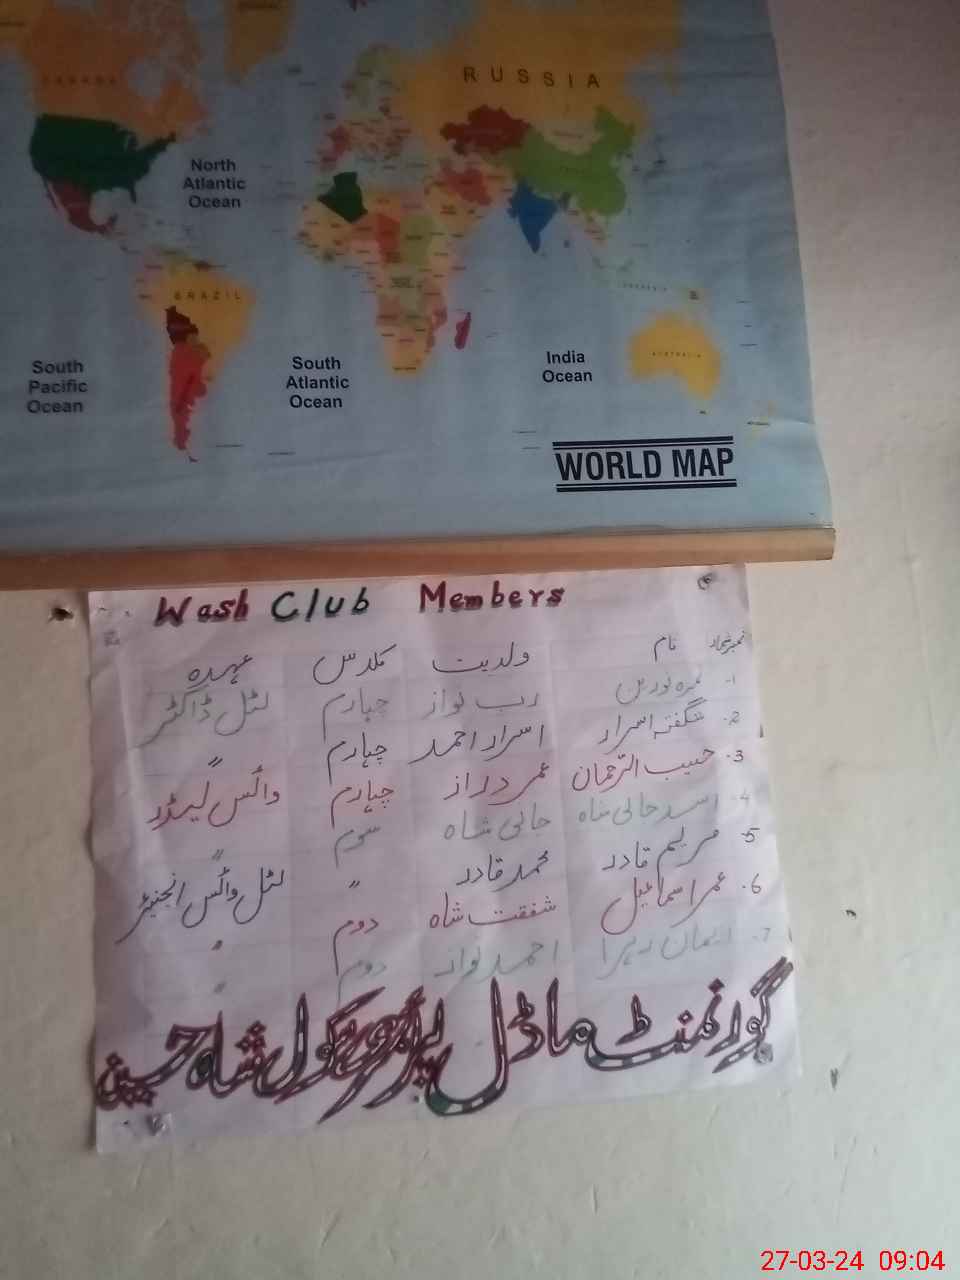 CANADA
RUSSIA
North
Atlantic
Ocean
BRAZIL
South
Pacific
Ocean
South
Atlantic
Ocean
India
Ocean
AUSTRALIA
WORLD MAP
Wash Club Members
نمبر شمار نام ولدیت کلاس عہدہ
1. نمرہ نورین رب نواز چہارم لٹل ڈاکٹر
2. شگفتہ اسرار اسرار احمد چہارم "
3. حبیب الرحمان عمر دراز چہارم واٹس لیڈر
4. اسد جانی شاہ جانی شاہ سوم "
5. مریم قادر محمد قادر " لٹل واٹس انجنیئر
6. عمر اسماعیل شفقت شاہ دوم "
7. ایمان زہرا احمد نواز دوم "
گورنمنٹ ماڈل پرائمری سکول شاہ حسین
27-03-24 09:04